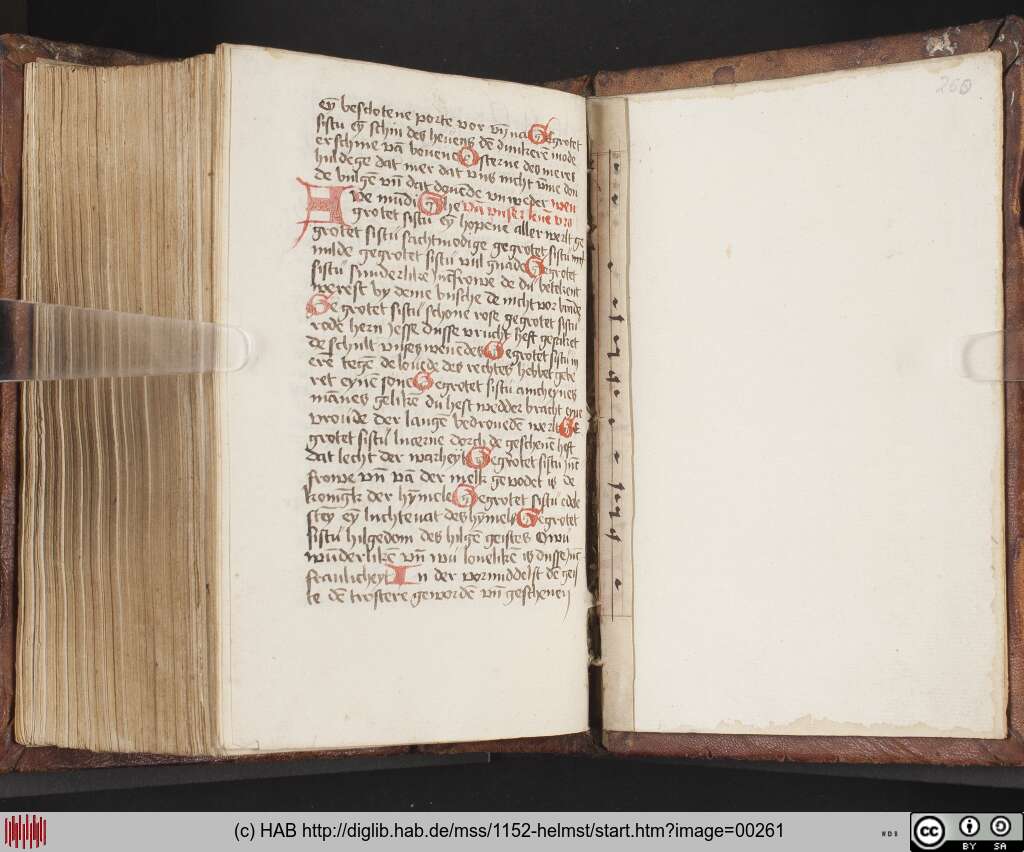 eȳ beslotene porte vor vñ na Gegrotet
sistu eȳ schin des heuens dē dunkerē mode
erschine vā bouene O sterne des meres
huldege dat mer dat vns nicht vme don
de bulgē vñ dat douēde vnweder
Aue mūdi She vā vnser leuē vro
grotet sistu eȳ hopene aller werlt ge
grotet sistu sachtmodige gegrotet sistu
milde gegrotet sistu vul gnade Gegrotet
sistu sunderlike iūcfrowe de du betekent
werest by deme busche de nicht vor brāde
Gegrotet sistu schone rose gegrotet sistu
rode hern Jesse dusse vrucht heft
de schult vnses wenēdes Gegrotet sistu
ere tegē de louede des rechtes hebbet gebe
ret eynē sone Gegrotet sistu ane eynes
mānes gelikē du hest wedder bracht eyne
vroude der langē bedrouedē werlt Ge
grotet sistu lucerne dorch de geschenē heft
dat lecht der warheyt Gegrotet sistu iūc
frowe vñ vā der melk gevodet is de
konīgk der hȳmele Gegrotet sistu edele
stey eȳ luchteuat des hȳmels Gegrotet
sistu hilgedom des hilgē geistes O wu
wūderlikē vñ wu louelikē is dusse iūc
fraulicheyt In der vormiddelst dē geis
te dē trostere geworden vñ geschenen
260
(c) HAB http://diglib.hab.de/mss/1152-helmst/start.htm?image=00261
WDB
cc BY SA